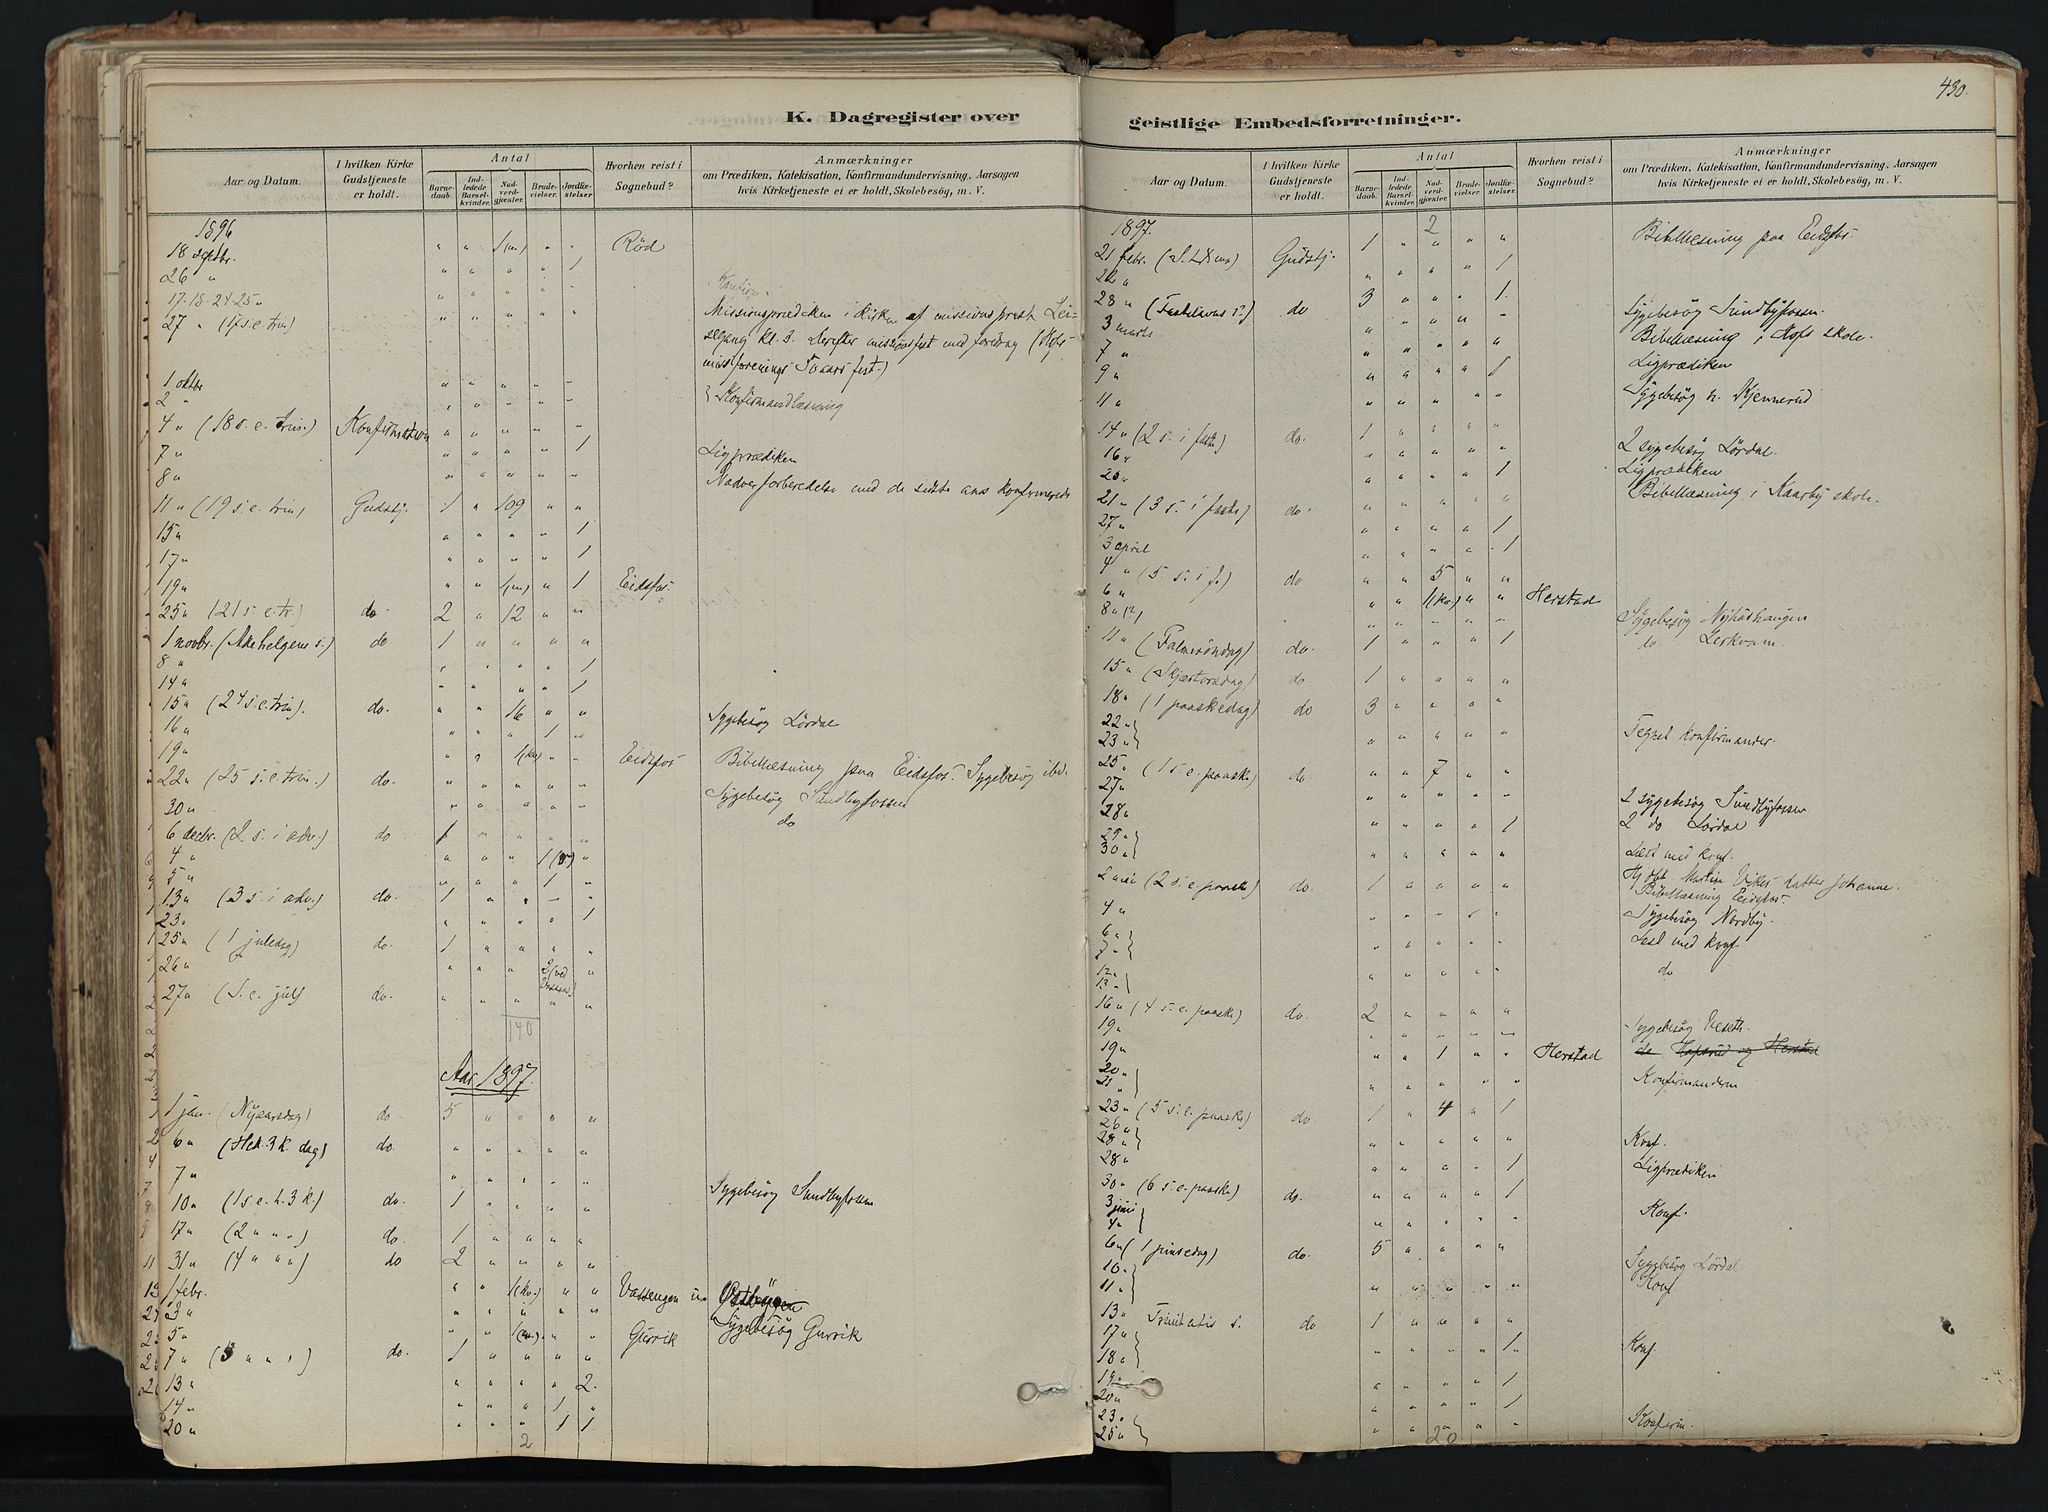 K. Dagregister over
Aar og Datum. I hvilken Kirke Gudstjeneste er holdt. Antal Barnedaab. Indledede Barselkvinder. Nadverdgjæster. Brudevielser. Jordfæstelser. Hvorhen reist i Sognebud? Anmærkninger om Prædiken, Katekisation, Konfirmandundervisning, Aarsagen hvis Kirketjeneste ei er holdt, Skolebesøg, m. V.
1896
18 septbr. " " 1(m) " " Rød
26 " " " " " 1
17-18-24-25 " " " " " "
27 " (17 s.e. trin) " " " " " Missionsprædiken i kirken af missionsprest
segang kl. 3. Derefter missionsfest med foredrag
1 oktbr " " " " "
2 " " " " " " } Konfirmandlæsning
4 " (18 s.e. trin.) Konfirmation " " " " "
7 " " " " " 1 Ligprædiken
8 " " " " " " Nadverforberedelse med de sidste aars konfirmerede
11 " (19 s.e. trin) Gudstj. 1 " 109 " "
15 " " " " " 1
17 " " " " " 1
19 " " " 1(m) " 1 Eidsfos.
25 " (21 s.e.tr) do 2 " 12 " "
1 novbr. (Allehelgens s.) do 1 " " " "
8 " " " " " 1
14 " " " " " 1
15 " (24 s.e. trin). do. " " 16 " "
16 " " " " 1 " Sygebesøg Lørdal
19 " " " 1(kv) " " Eidsfos
22 " (25 s.e. trin.) do. " " " " " Bibellæsning paa Eidsfos. Sygebesøg ibd.
30 " " " " " " Sygebesøg Sundbyfossen
6 decbr. (2 s. i adv.) do 1 " " " " do
4 " " " " 1 "
5 " " " " 1 "
13 " (3 s. i adv.) do. 1 " " " "
23 " " " " " 1
25 " (1 juledag) do. 1 " " " "
26 " " " " 2 (ved "
27 " (S. e. jul) do. " " " " "
140
Aar 1897.
1 jan. (Nytaarsdag) do 5 " " " "
6 " (Hel. 3 k. dag) do. " " " " "
7 " " " " " "
10 " (1 s.e.h. 3 k.) do. 1 " " " " Sygebesøg Sundbyfossen
17 " (2 " " ") do. 1 " " " "
31 " (4 " " ") do 2 " " " "
1 febr. " " 1(kv.) " " Vassengen
3 " " " " " "
5 " " " 1(m.) " " Gurrik Sygebesøg Gurrik
7 " (5 " " ") do. 1 " " " "
13 " " " " " 2.
14 " " " " 1 "
20 " " " " 1 1
2
430.
geistlige Embedsforretninger.
Aar og Datum. I hvilken Kirke Gudstjeneste er holdt. Antal Barnedaab. Indledede Barselkvinder. Nadverdgjæster. Brudevielser. Jordfæstelser. Hvorhen reist i Sognebud? Anmærkninger om Prædiken, Katekisation, Konfirmandundervisning, Aarsagen hvis Kirketjeneste ei er holdt, Skolebesøg, m. V.
1897. 2
21 febr. Gudstj. 1 " " " " Bibellæsning paa Eidsfos.
22 " " " " " 1
28 " (Fastelavns s.) do 3 " " " 1.
3 marts " " " " " Sygebesøg Sundbyfossen.
7 " " " " " " Bibellæsning i skole.
9 " " " " " 1 Ligprædiken
11 " " " " " " Sygebesøg n. Kjennerud
14 " (2 s. i faste) do. 1 " " " "
16 " " " " " " 2 sygebesøg Lørdal.
20 " " " " " 1 Ligprædiken
21 " (3 s. i faste) do. " " " " " Bibellæsning i Kaarby skole.
27 " " " " " 1
3 april " " " " 1
4 " (5. s. i f.) do " " 5 " "
6 " " " 1(kv.) " " Herstad
8 " " " " " " Sygebesøg
11 " (Palmesøndag) do. 1 " " " 1 do
15 " (Skjærtorsdag) do. 1 " " " "
18 " (1 paaskedag) do 3 " " " "
22 " }
23 " } " " " " " Tegnet konfirmander.
25 " (1 s.e. paaske) do " " 7 " "
27 " " " " " " 2 sygebesøg Sundbyfossen
28 " " " " " 1 2 do Lørdal
29 " }
30 " } " " " " " Læst med konf.
2 mai (2 s.e. paaske) do. 1 " " " "
4 " " " " " " Bibellæsning Eidsfos.
Sygebesøg Nordby.
6 " }
7 " } " " " " " Læst med konf
12 " }
13 " } " " " " " do
16 " (4 s.e. paaske) do. 2 " " " "
19 " " " " " " Sygebesøg
19 " " " 1 " " Herstad do
20 " }
21 " } " " " " " Konfirmanderne
23 " (5 s.e. paaske) do. 1 " 4 " 1
26 " }
28 " } " " " " " Konf.
28 " " " " " 1 Ligprædiken
30 " (6 s.e. paaske) do. " " " " 1
3 juni }
4 " } " " " " " Konf.
6 " (1 pinsedag) do. 5 " " " "
10 " } Sygebesøg Lørdal
11 " } " " " " " Konf
13 " Trinitatis s. do 1 " " " "
17 " }
18 " } " " " " 1 Konf
19 " " " " " 1
20 " " " " " 1
23 " }
25 " } " " " " " Konfirm.
20